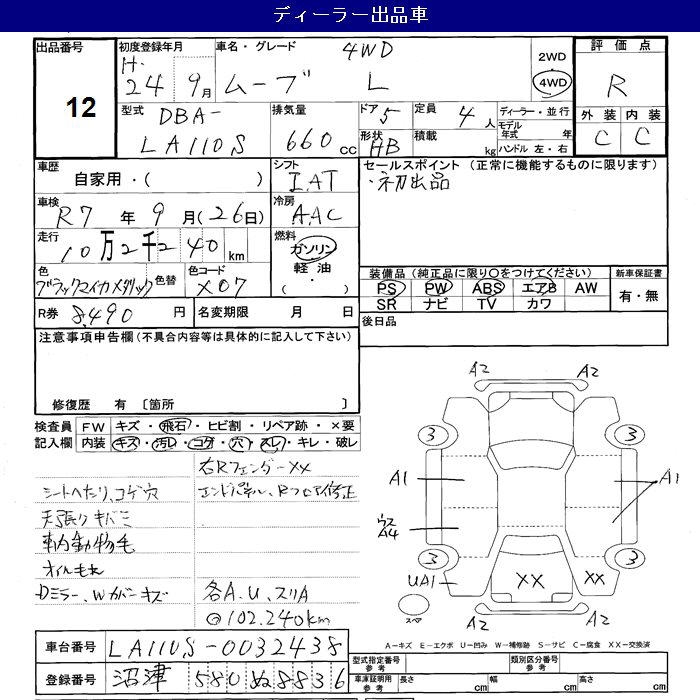 ディーラー出品車
出品番号
12
初度登録年月
H.
24 9月
車名・グレード
4WD
ムーブ L
2WD
4WD
評価点
R
外装 内装
C C
型式
DBA-
LA110S
排気量
660cc
ドア 5
形状 HB
定員 4人
積載 kg
ディーラー・並行
モデル年式 年
ハンドル 左・右
車歴
自家用・( )
シフト
I.AT
セールスポイント (正常に機能するものに限ります)
・初出品
車検
R7 年 9 月(26日)
冷房
A.AC
走行
10万2千2 40 km
燃料
ガソリン
軽油
・( )
色
ブラックマイカメタリック
色替
色コード
X07
装備品(純正品に限り〇をつけてください)
PS PW ABS エアB AW
SR ナビ TV カワ
新車保証書
有・無
R券 8,490 円
名変期限 月 日
後日品
注意事項申告欄(不具合内容等は具体的に記入して下さい)
修復歴 有 〔箇所 〕
検査員記入欄
FW キズ・飛石・ヒビ割・リペア跡・×要
内装 キズ・汚レ・コゲ・穴・スレ・キレ・破レ
右Rフェンダー××
シートヘたり、コゲ穴
エンドパネル、Rフロア修正
天張りキバミ
車内動物毛
オイルもれ
Dミラー、Wカバーキズ
各A.U.スリA
@102.240km
A2 A2
3 3
A1 A1
ウスA4
3 3
UA1 ×× ××
スペア
A2 A2
A-キズ E-エクボ U-凹み W-補修跡 S-サビ C-腐食 XX-交換済
車台番号 LA110S-0032438
登録番号 沼津 580ぬ8836
型式指定番号 参考
類別区分番号 参考
車庫証明用 参考
長さ cm 幅 cm 高さ cm